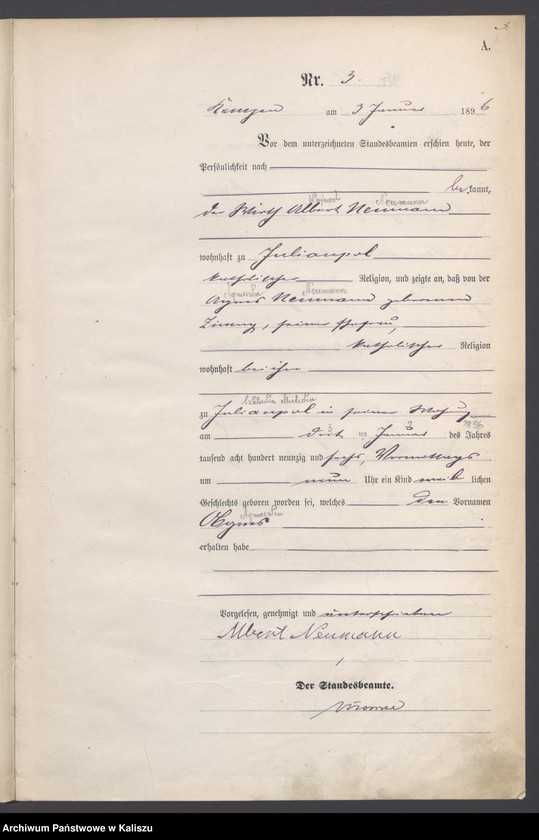 3
A.
Nr. 3.
Kempen am 3 Januar 1896
Vor dem unterzeichneten Standesbeamten erschien heute, der
Persönlichkeit nach
be kannt,
Wojciech Neumann
der Wirth Albert Neumann
wohnhaft zu Julianpol
katholischer Religion, und zeigte an, daß von der
Agnieszka Neumann
Agnes Neumann geborenen
seiner Ehefrau,
katholischer Religion
wohnhaft bei ihm
zu Julianpol in seiner Wohnung
am ten Januar des Jahres
tausend acht hundert neunzig und sechs, Vormittags
um neun Uhr ein Kind weib lichen
Geschlechts geboren worden sei, welches den Vornamen
Agnieszka
Agnes
erhalten habe
Vorgelesen, genehmigt und unterschrieben
Albert Neumann
Der Standesbeamte.
Archiwum Państwowe w Kaliszu